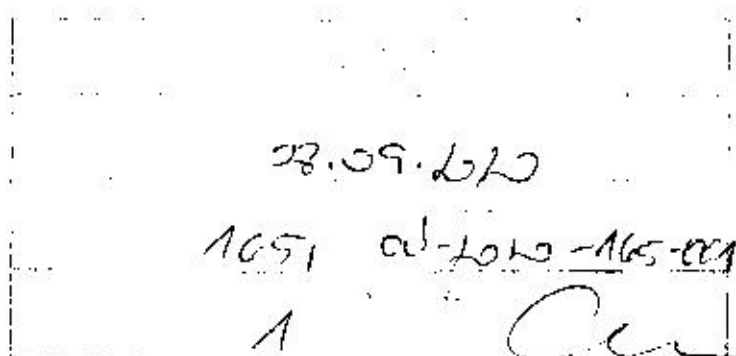 08.09.2020
165, 2020-165-001
1